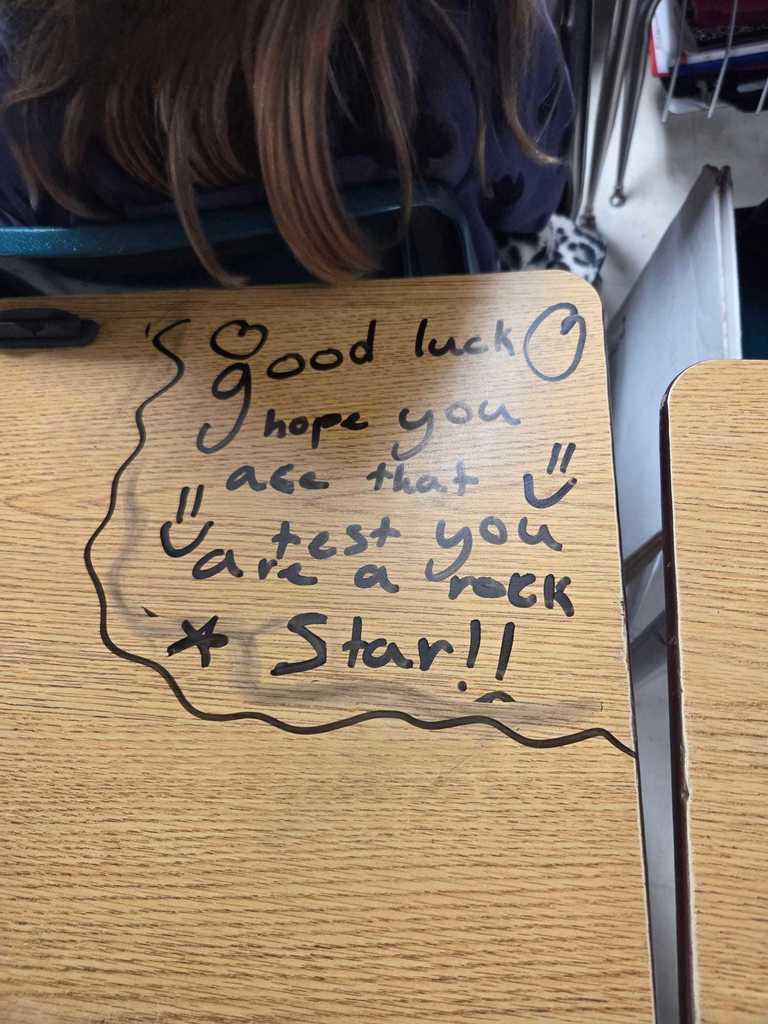 good luck
hope you
ace that
test you
are a rock
Star!!